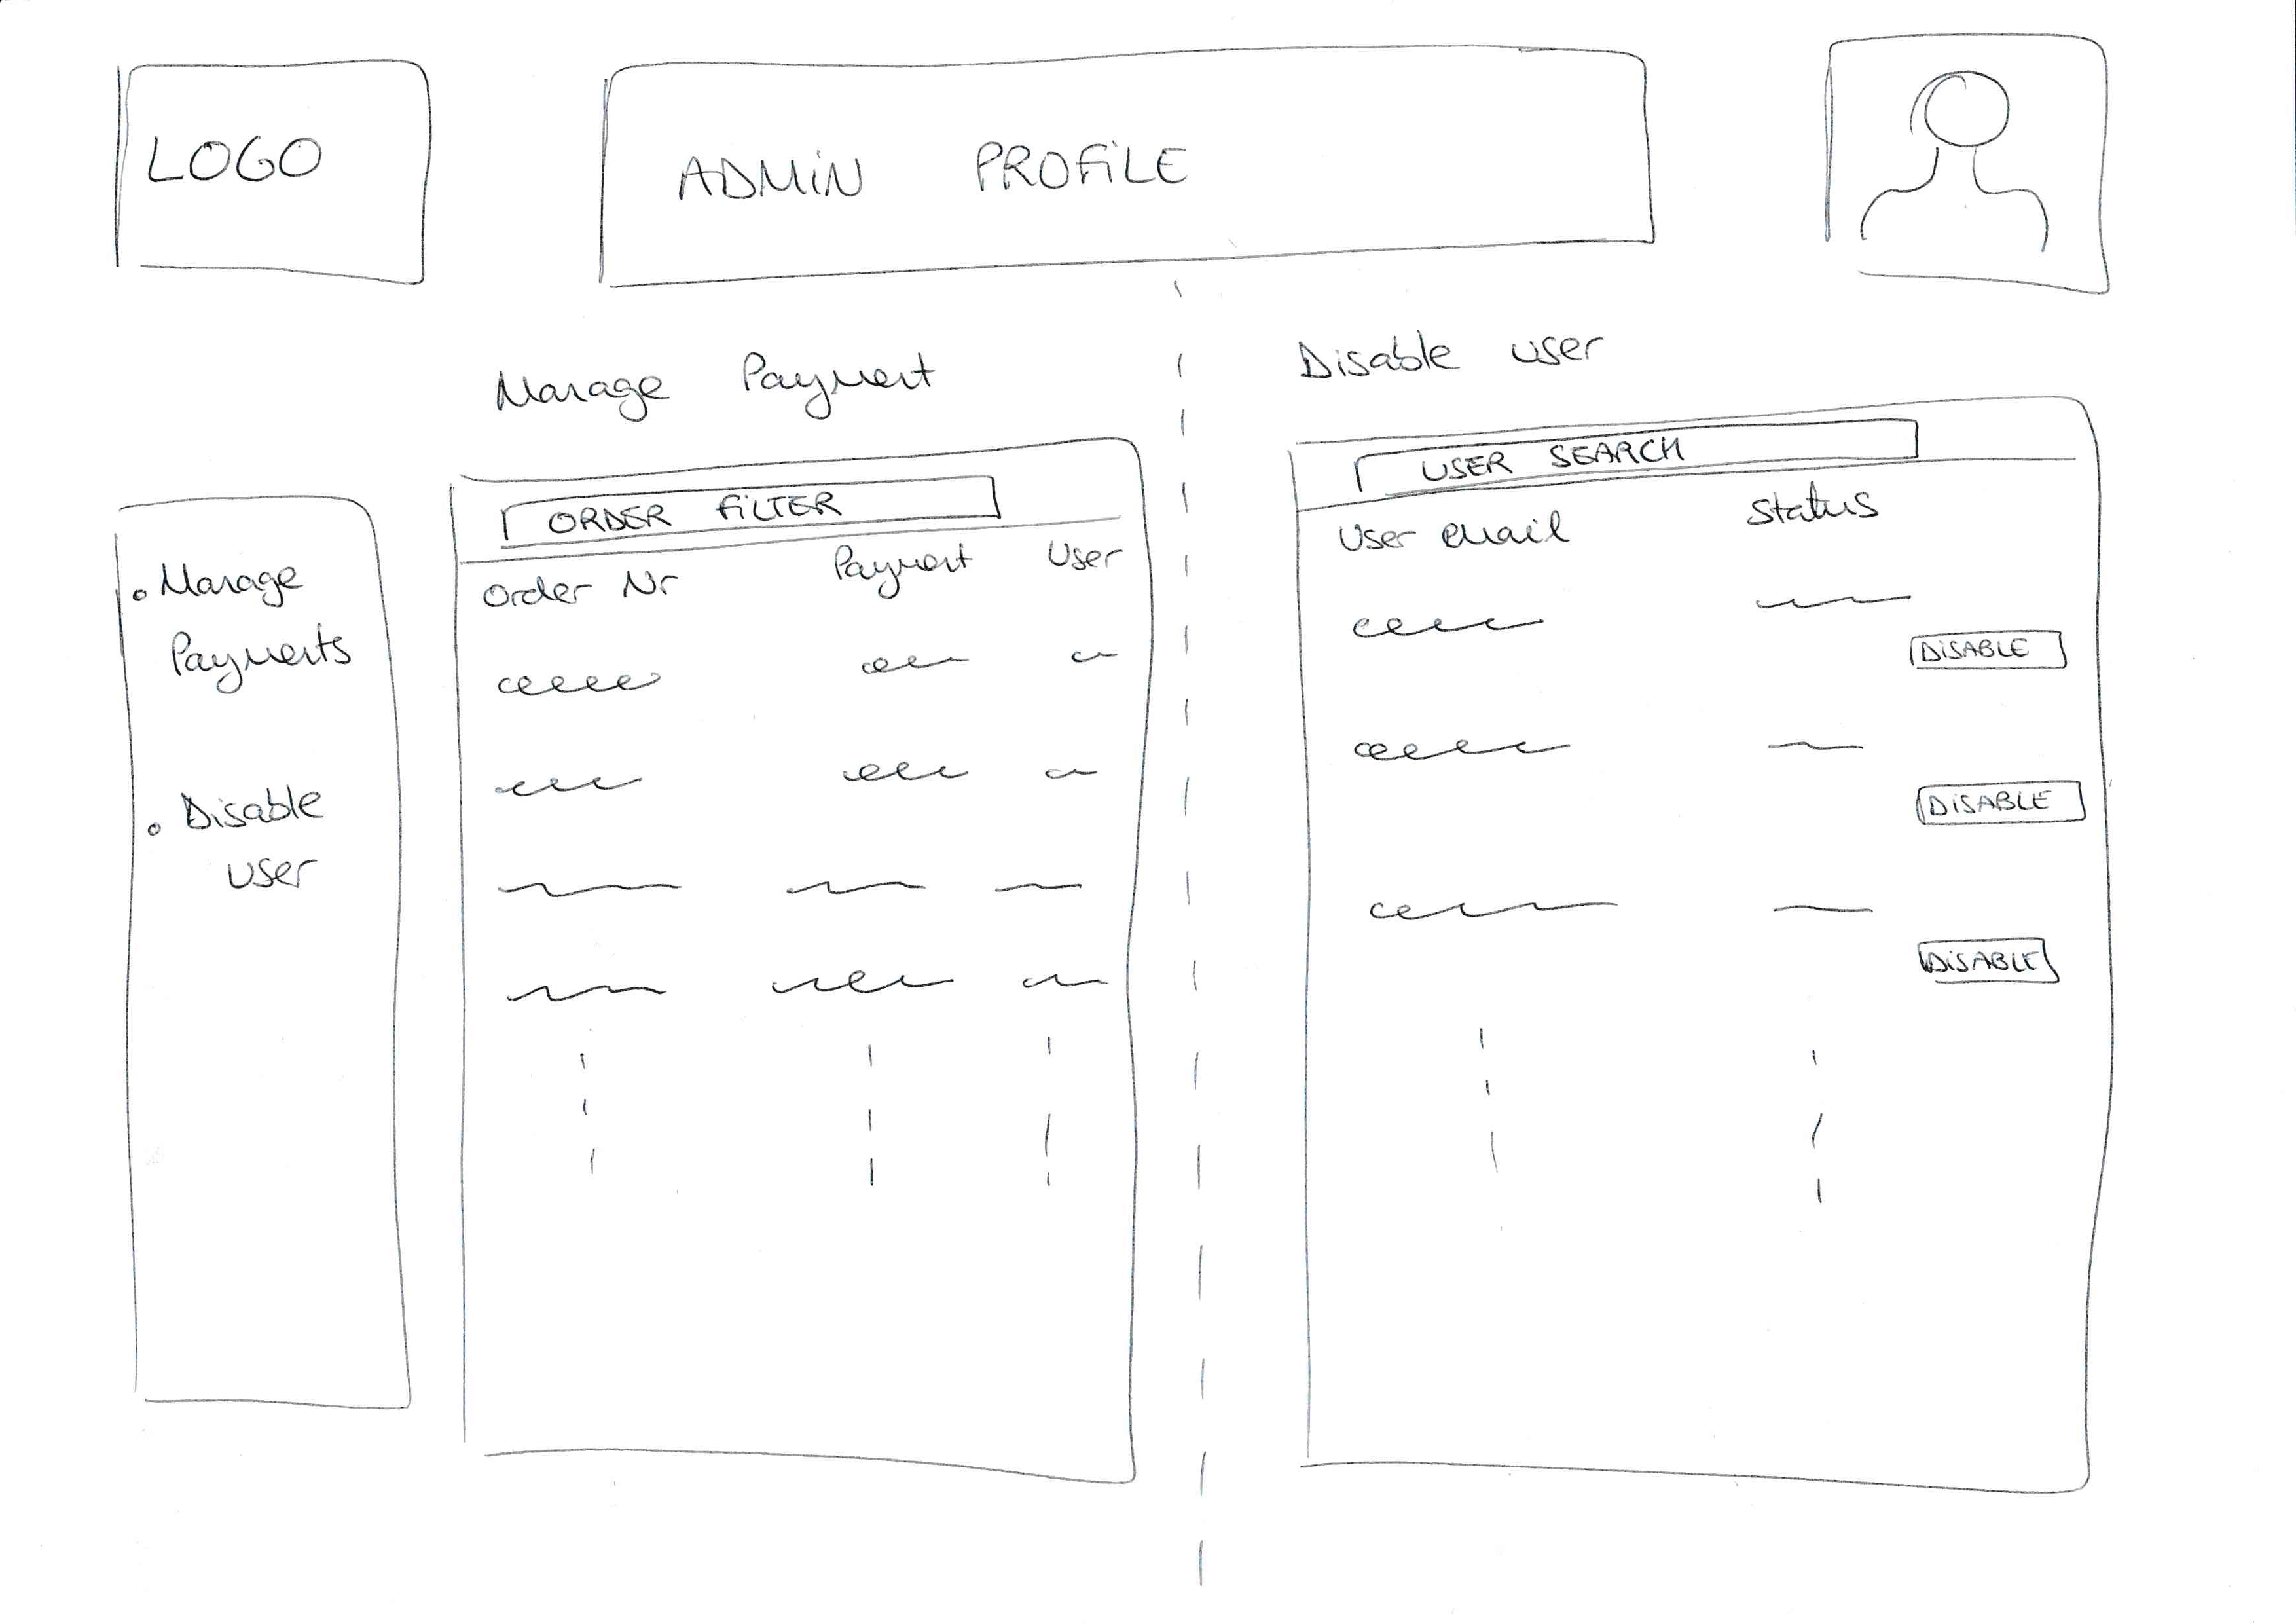 LOGO
ADMIN PROFILE
Manage Payment
Disable user
Manage
Payments
Disable
user
ORDER FILTER
Order Nr Payment User
USER SEARCH
User email Status
DISABLE
DISABLE
DISABLE